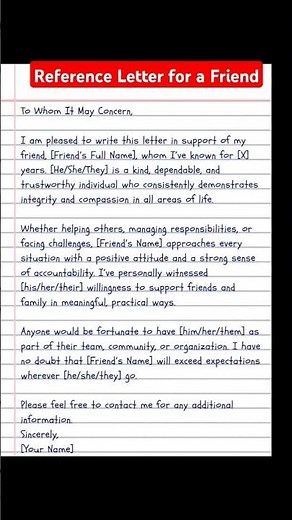 Reference Letter for a Friend
To Whom It May Concern,
I am pleased to write this letter in support of my
friend, [Friend's Full Name], whom I've known for [X]
years. [He/She/They] is a kind, dependable, and
trustworthy individual who consistently demonstrates
integrity and compassion in all areas of life.
Whether helping others, managing responsibilities, or
facing challenges, [Friend's Name] approaches every
situation with a positive attitude and a strong sense
of accountability. I've personally witnessed
[his/her/their] willingness to support friends and
family in meaningful, practical ways.
Anyone would be fortunate to have [him/her/them] as
part of their team, community, or organization. I have
no doubt that [Friend's Name] will exceed expectations
wherever [he/she/they] go.
Please feel free to contact me for any additional
information.
Sincerely,
[Your Name]